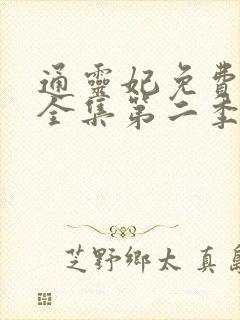 通靈妃免費
全集第二季
芝野鄉太 真島